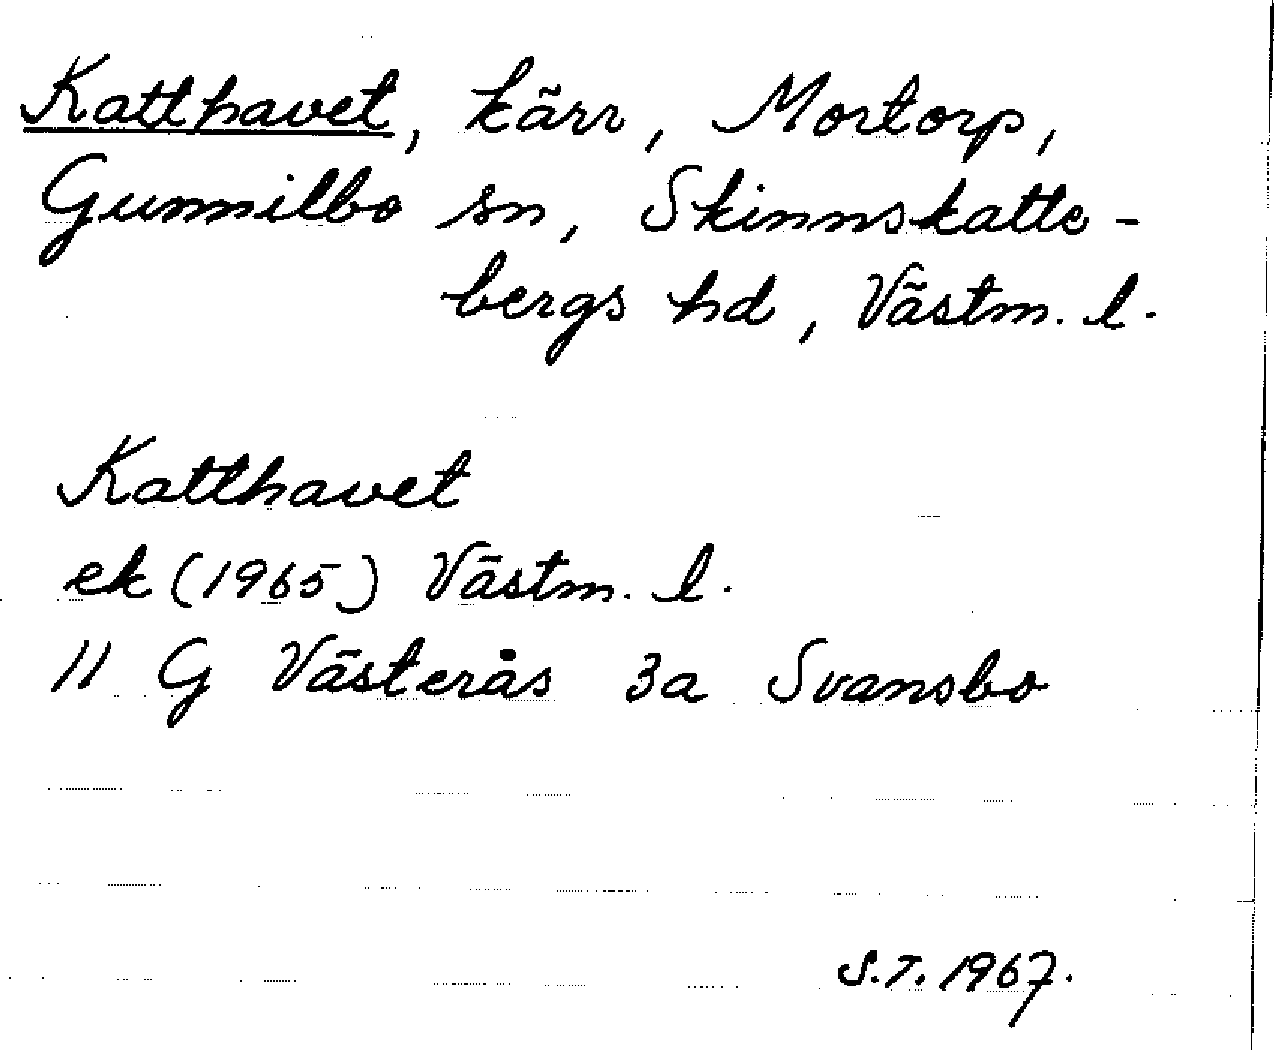 Katthavet, kärr, Mortorp,
Gunnilbo sn, Skinnskatte-
bergs hd, Västm. l.
Katthavet
ek (1965) Västm. l.
11 G Västerås 3a Svansbo
S.T. 1967.